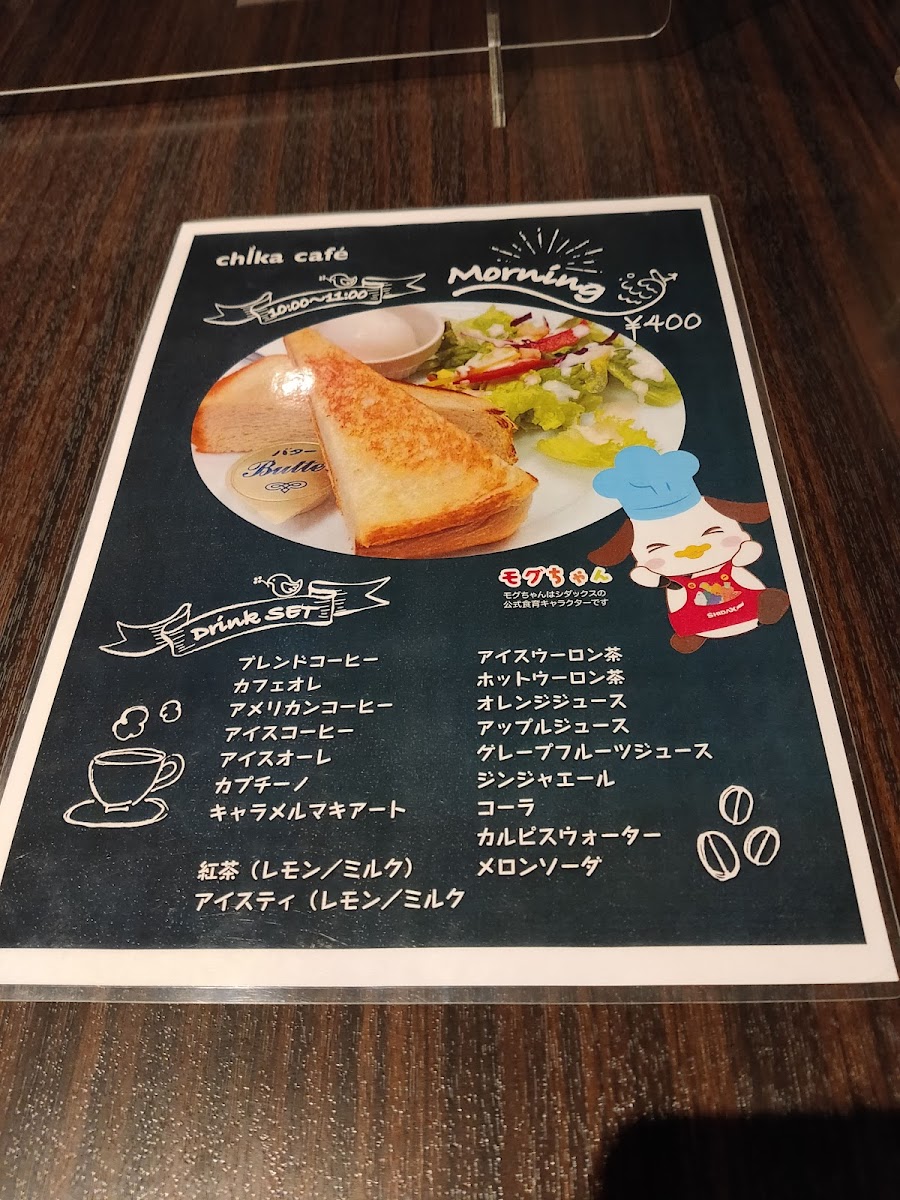 chika café
10:00~11:00
Morning
¥400
バター
Butter
モグちゃん
モグちゃんはシダックスの
公式食育キャラクターです
SHiDAX
Drink SET
ブレンドコーヒー
カフェオレ
アメリカンコーヒー
アイスコーヒー
アイスオーレ
カプチーノ
キャラメルマキアート
紅茶（レモン／ミルク）
アイスティ（レモン／ミルク
アイスウーロン茶
ホットウーロン茶
オレンジジュース
アップルジュース
グレープフルーツジュース
ジンジャエール
コーラ
カルピスウォーター
メロンソーダ